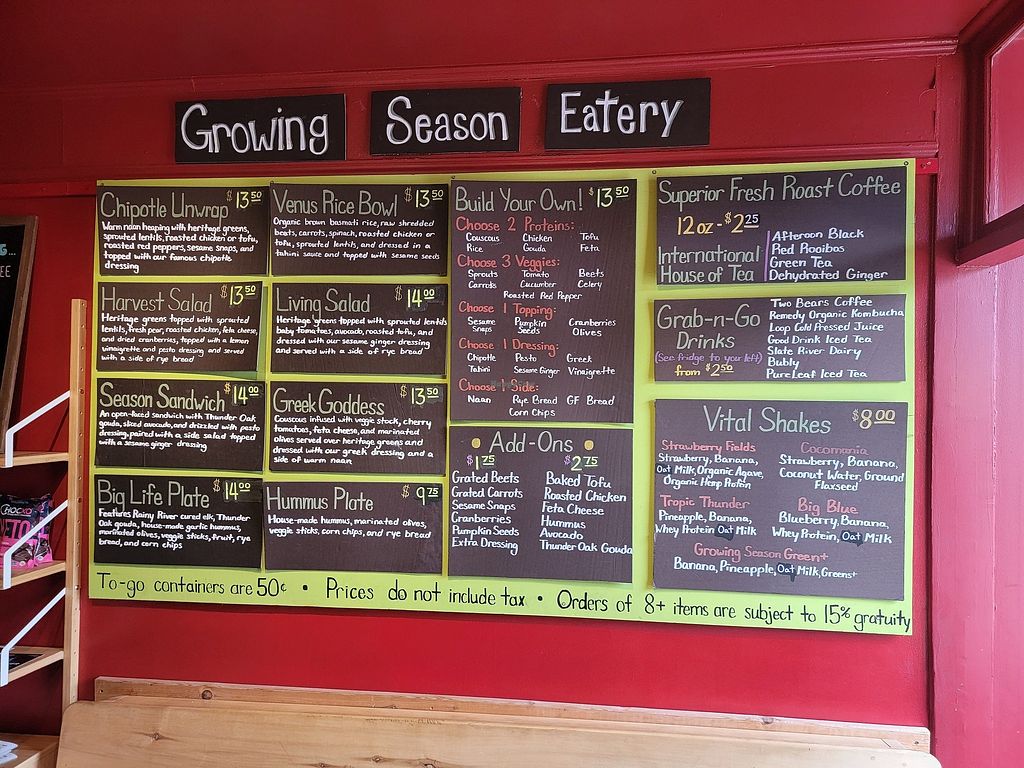 Growing Season Eatery
Chipotle Unwrap $13.50
Warm naan heaping with heritage greens,
sprouted lentils, roasted chicken or tofu,
roasted red peppers, sesame snaps, and
topped with our famous chipotle
dressing
Venus Rice Bowl $13.50
Organic brown basmati rice, raw shredded
beets, carrots, spinach, roasted chicken or
tofu, sprouted lentils, and dressed in a
tahini sauce and topped with sesame seeds
Harvest Salad $13.50
Heritage greens topped with sprouted
lentils, fresh pear, roasted chicken, feta cheese,
and dried cranberries, topped with a lemon
vinaigrette and pesto dressing and served
with a side of rye bread
Living Salad $14.00
Heritage greens topped with sprouted lentils
baby tomatoes, avocado, roasted tofu, and
dressed with our sesame ginger dressing
and served with a side of rye bread
Season Sandwich $14.00
An open-faced sandwich with Thunder Oak
gouda, sliced avocado, and drizzled with pesto
dressing, paired with a side salad topped
with a sesame ginger dressing
Greek Goddess $13.50
Couscous infused with veggie stock, cherry
tomatoes, feta cheese, and marinated
olives served over heritage greens and
dressed with our greek dressing and a
side of warm naan
Big Life Plate $14.00
Features Rainy River cured elk, Thunder
Oak gouda, house-made garlic hummus,
marinated olives, veggie sticks, fruit, rye
bread, and corn chips
Hummus Plate $9.75
House-made hummus, marinated olives,
veggie sticks, corn chips, and rye bread
Build Your Own! $13.50
Choose 2 Proteins:
Couscous Chicken Tofu
Rice Gouda Feta
Choose 3 Veggies:
Sprouts Tomato Beets
Carrots Cucumber Celery
Roasted Red Pepper
Choose 1 Topping:
Sesame Snaps Pumpkin Seeds Cranberries
Olives
Choose 1 Dressing:
Chipotle Pesto Greek
Tahini Sesame Ginger Vinaigrette
Choose 1 Side:
Naan Rye Bread GF Bread
Corn Chips
Add-Ons
$1.75 $2.75
Grated Beets Baked Tofu
Grated Carrots Roasted Chicken
Sesame Snaps Feta Cheese
Cranberries Hummus
Pumpkin Seeds Avocado
Extra Dressing Thunder Oak Gouda
Superior Fresh Roast Coffee
12oz - $2.25
International
House of Tea
Afternoon Black
Red Rooibos
Green Tea
Dehydrated Ginger
Grab-n-Go
Drinks
(See fridge to your left)
from $2.50
Two Bears Coffee
Remedy Organic Kombucha
Loop Cold Pressed Juice
Good Drink Iced Tea
Slate River Dairy
Bubly
Pure Leaf Iced Tea
Vital Shakes $8.00
Strawberry Fields
Strawberry, Banana,
Oat Milk, Organic Agave,
Organic Hemp Protein
Cocomania
Strawberry, Banana,
Coconut Water, Ground
Flaxseed
Tropic Thunder
Pineapple, Banana,
Whey Protein Oat Milk
Big Blue
Blueberry, Banana,
Whey Protein, Oat Milk
Growing Season Green+
Banana, Pineapple, Oat Milk, Greens+
To-go containers are 50¢ • Prices do not include tax • Orders of 8+ items are subject to 15% gratuity